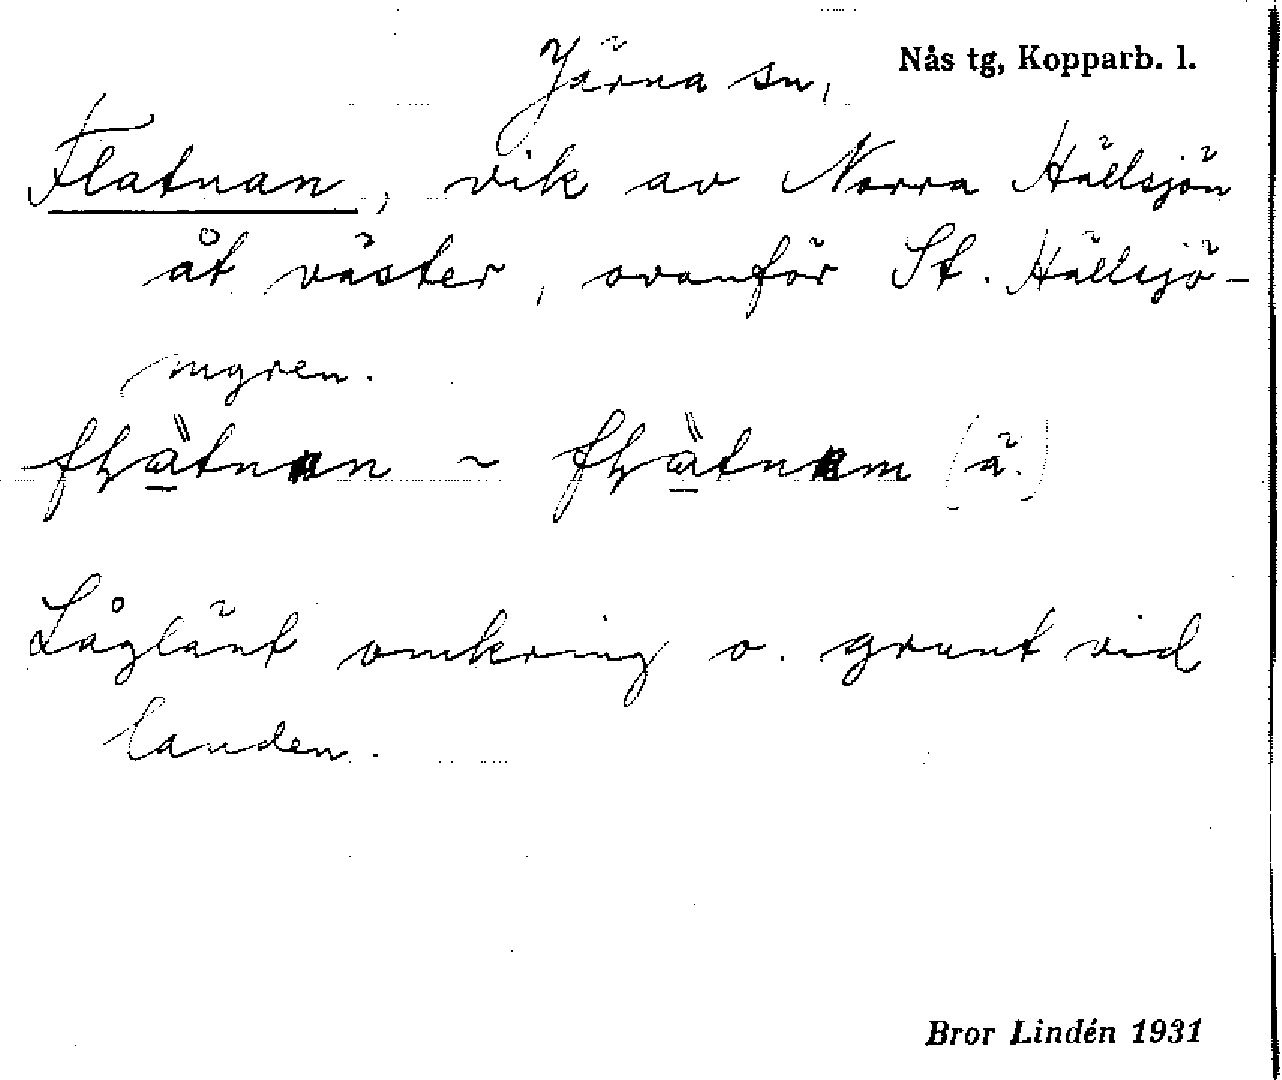 Järna sn, Nås tg, Kopparb. l.
Flatnan, vik av Norra Hällsjön
åt väster, ovanför St. Hällsjö-
mgren.
(ä.)
Låglänt omkring o. grunt vid
landen.
Bror Lindén 1931